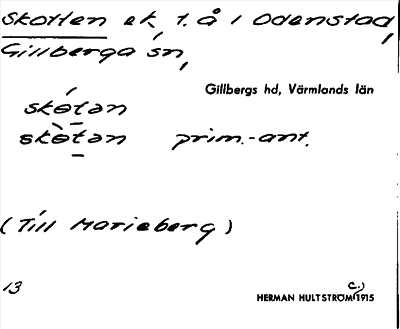 Skotten ek. t. å i Odenstad,
Gillberga sn,
Gillbergs hd, Värmlands län
skǿtən
skɵ̀tən prim.-ant.
(Till Marieberg)
13
HERMAN HULTSTRÖM (c.) 1915